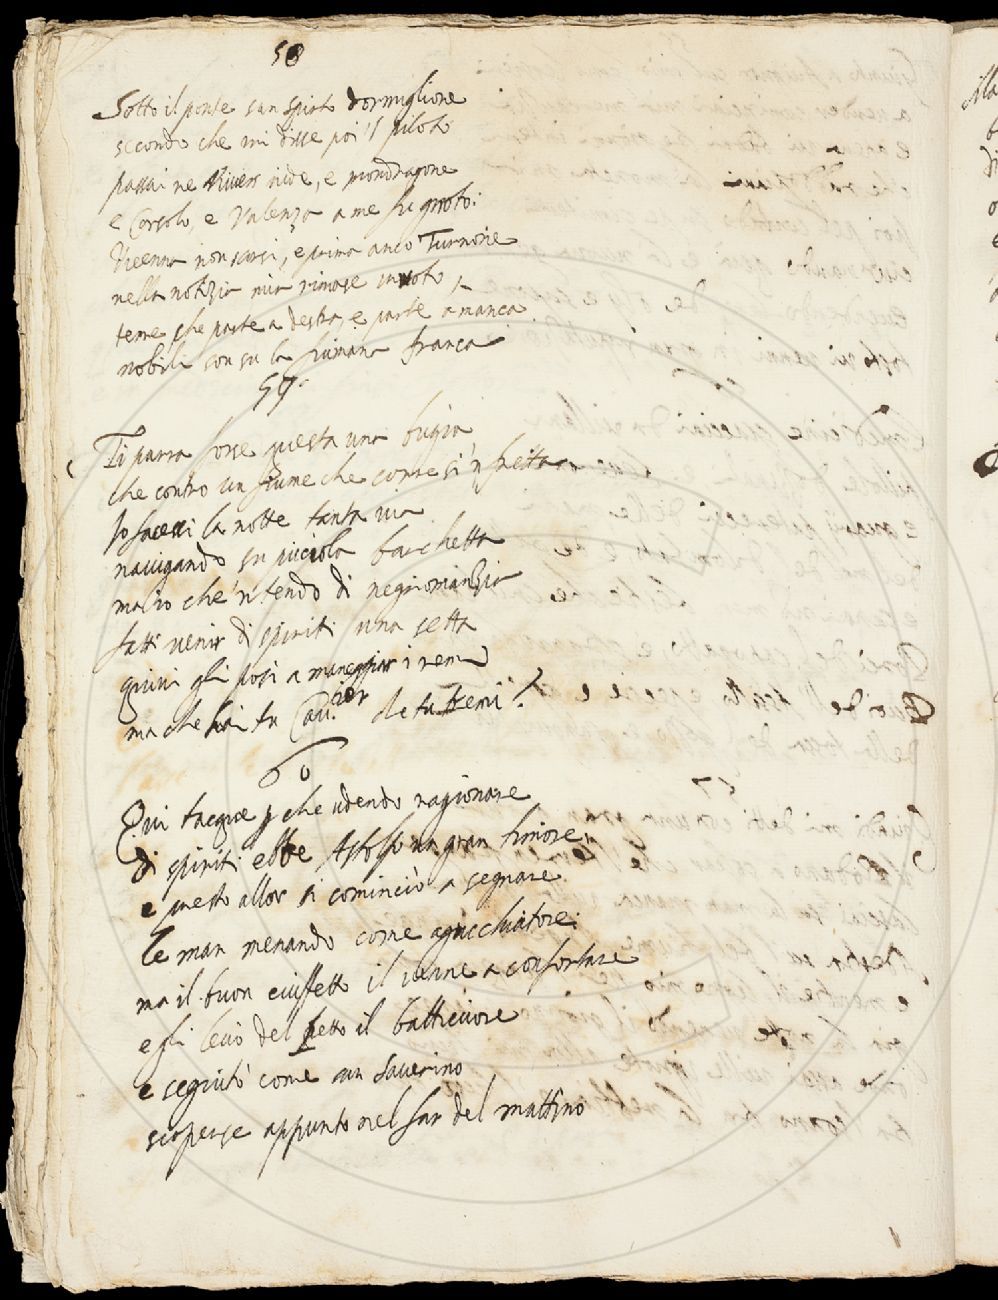 58
Sotto il ponte san spirto dormiglione
secondo che mi disse poi 'l piloto
passai ne vider nide, e mondragone
e Corsolo, e Valenza a me fu gnoto:
Vienna non scorsi, e prima anco Turnone
nella notizia mia rimase in voto
terre che parte a destra, e parte a manca
nobili son su la fiumana franca
59.
Ti parra forse questa una bugia,
che contro un fiume che corre si 'n fretta
Io facessi la notte tanta via
navigando su picciola barchetta
ma io che 'ntendo di negromanzia
fatti venir di spiriti una setta
quivi gli posi a maneggiar i remi
ma che hai tu Cavalier che tu tremi?
60
Qui tacque p che udendo ragionare
di spiriti ebbe Astolfo un gran timore:
e presto allor si cominciò a segnare
le man menando come agucchiatore:
ma il buon ciuffetto il venne a confortare
e gli levò del petto il batticuore
e seguitò come un saverino
scoperse appunto nel far del mattino